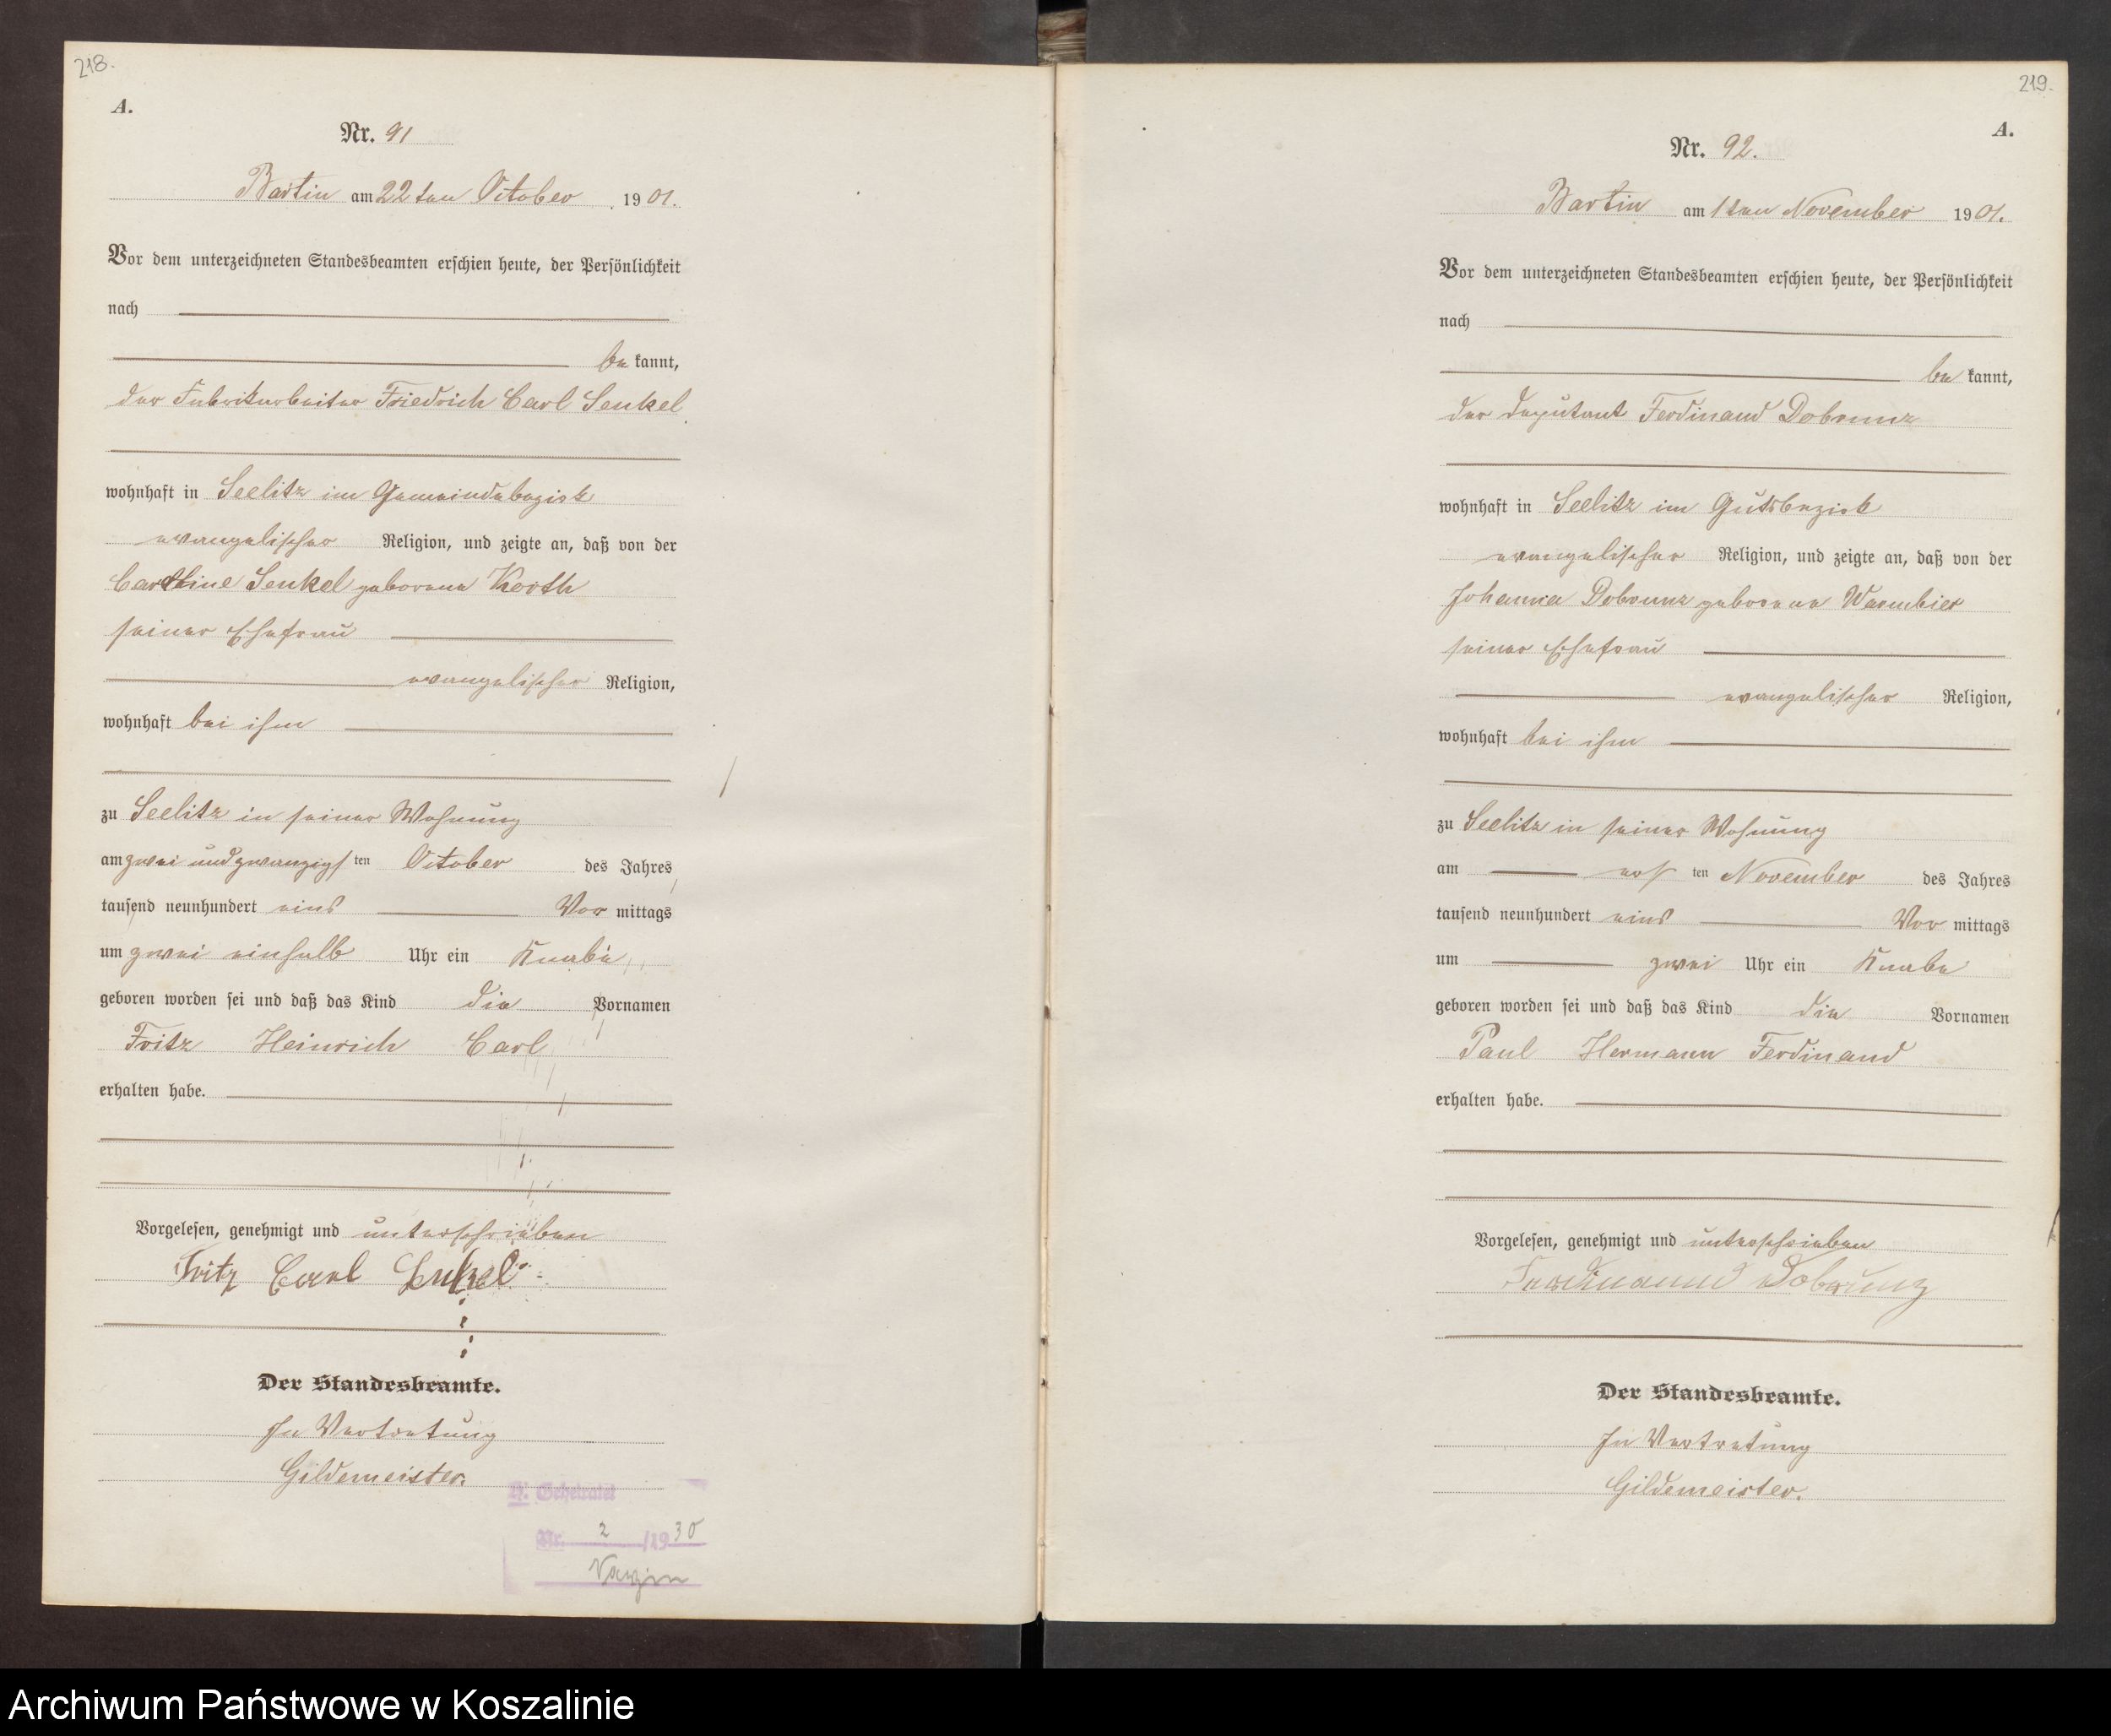 218.
A.
Nr. 91
Bartin am 22ten October 1901.
Vor dem unterzeichneten Standesbeamten erschien heute, der Persönlichkeit
nach
be kannt,
der Fabrikarbeiter Friedrich Carl Senkel
wohnhaft in Seelitz im Gemeindebezirk
evangelischer Religion, und zeigte an, daß von der
Caroline Senkel geborene Korth
seiner Ehefrau
evangelischer Religion,
wohnhaft bei ihm
zu Seelitz in seiner Wohnung
am zwei und zwanzigsten October des Jahres
tausend neunhundert eins Vor mittags
um zwei einhalb Uhr ein Knabe
geboren worden sei und daß das Kind die Vornamen
Fritz Heinrich Carl
erhalten habe.
Vorgelesen, genehmigt und unterschrieben
Fritz Carl Senkel
Der Standesbeamte.
In Vertretung
Gildemeister.
Nr. 2 /1930
Varzin
219.
A.
Nr. 92.
Bartin am 1ten November 1901.
Vor dem unterzeichneten Standesbeamten erschien heute, der Persönlichkeit
nach
be kannt,
der Deputant Ferdinand Dobrunz
wohnhaft in Seelitz im Gutsbezirk
evangelischer Religion, und zeigte an, daß von der
Johanna Dobrunz geborene Warmbier
seiner Ehefrau
evangelischer Religion,
wohnhaft bei ihm
zu Seelitz in seiner Wohnung
am ersten November des Jahres
tausend neunhundert eins Vor mittags
um zwei Uhr ein Knabe
geboren worden sei und daß das Kind die Vornamen
Paul Hermann Ferdinand
erhalten habe.
Vorgelesen, genehmigt und unterschrieben
Ferdinannd Dobrunz
Der Standesbeamte.
In Vertretung
Gildemeister.
Archiwum Państwowe w Koszalinie